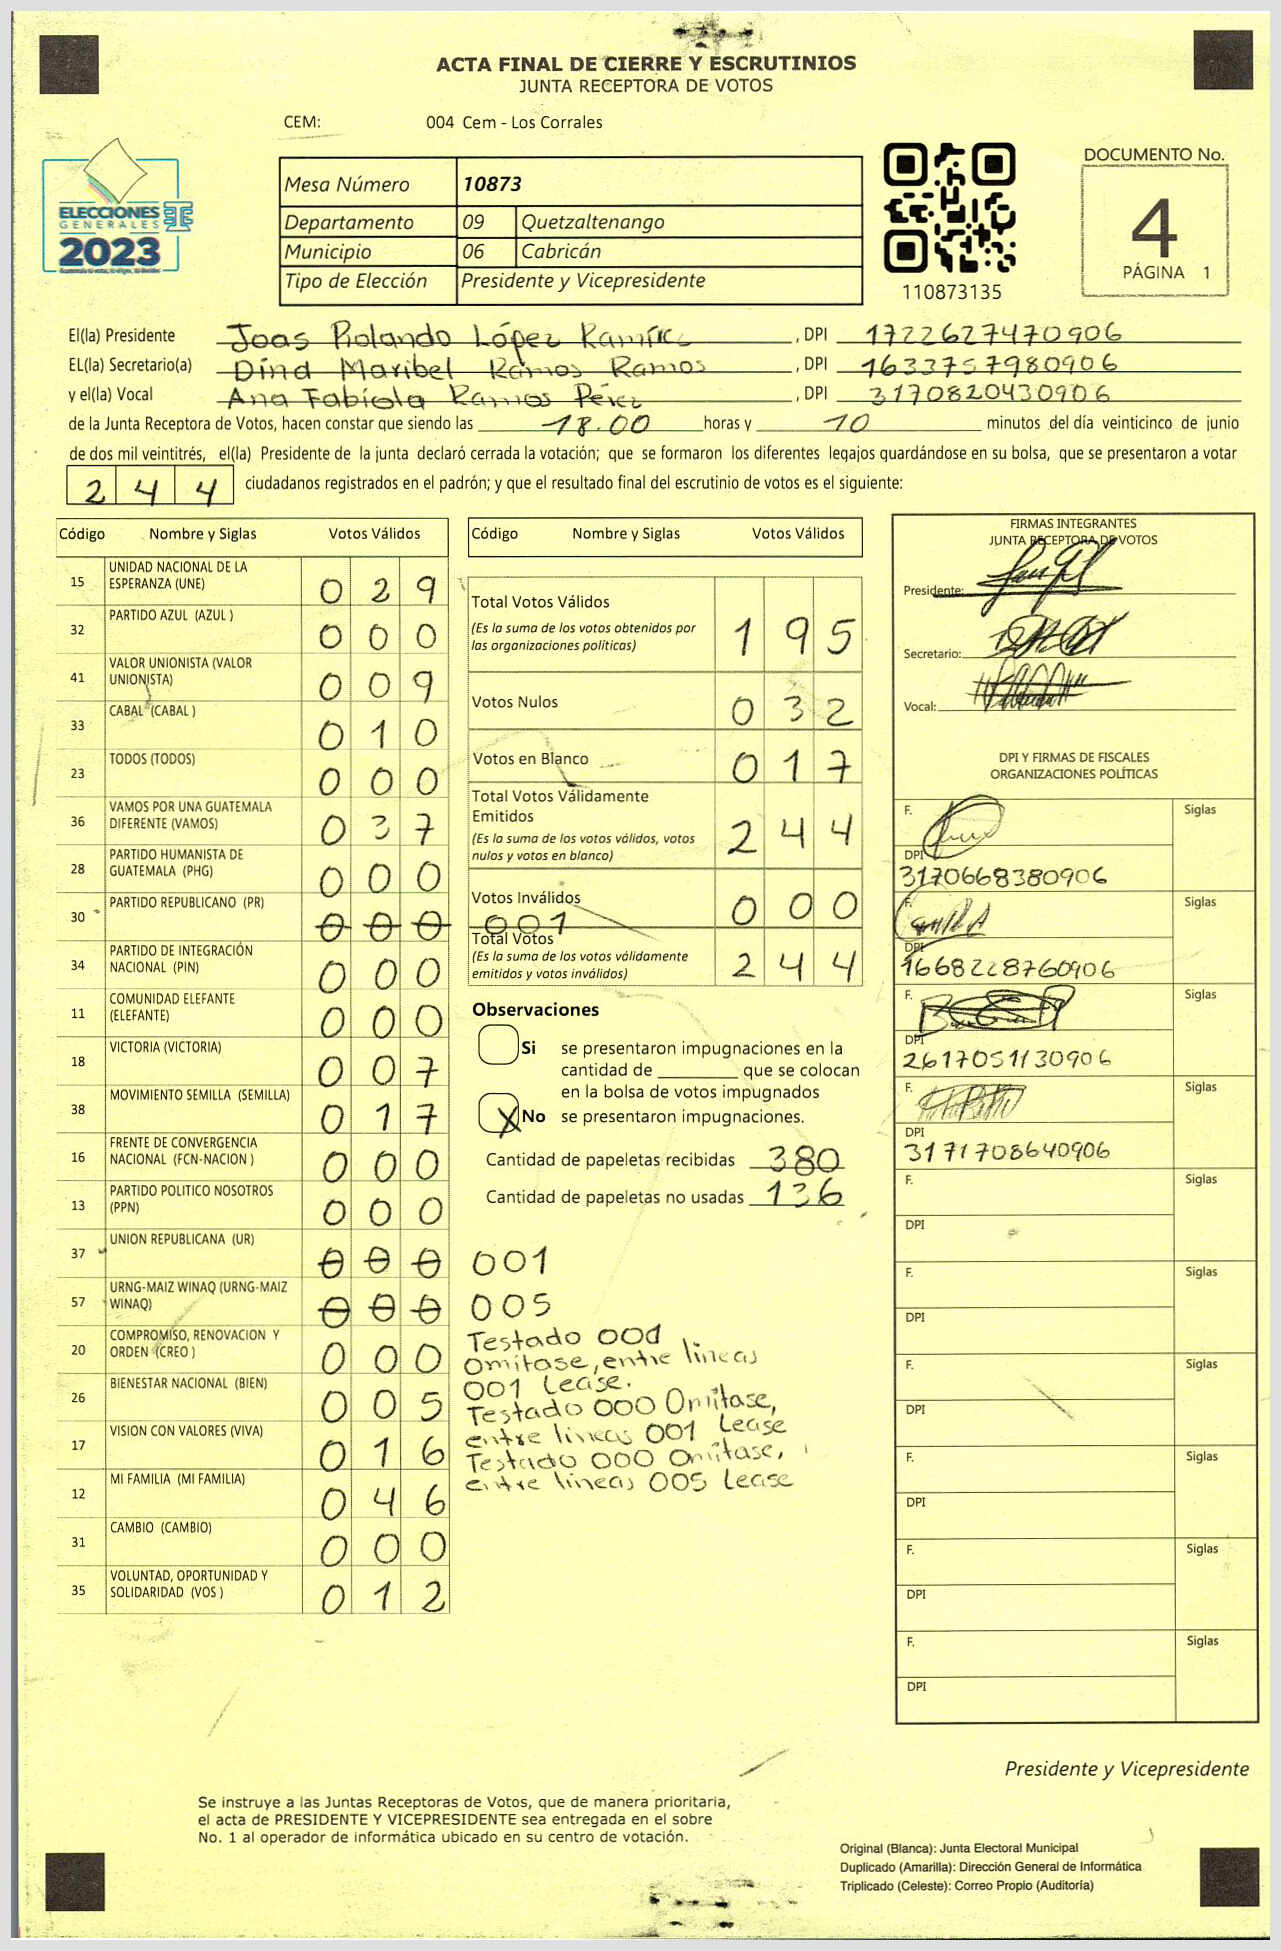 ACTA FINAL DE CIERRE Y ESCRUTINIOS
JUNTA RECEPTORA DE VOTOS
CEM: 004 Cem - Los Corrales
ELECCIONES
GENERALES
2023
Mesa Número 10873
Departamento 09 Quetzaltenango
Municipio 06 Cabricán
Tipo de Elección Presidente y Vicepresidente
110873135
DOCUMENTO No.
4
PÁGINA 1
El(la) Presidente Joas Rolando López Ramírez , DPI 1722627470906
EL(la) Secretario(a) Dina Maribel Ramos Ramos , DPI 1633757980906
y el(la) Vocal Ana Fabiola Ramos Pérez , DPI 3170820430906
de la Junta Receptora de Votos, hacen constar que siendo las 18.00 horas y 10 minutos del día veinticinco de junio
de dos mil veintitrés, el(la) Presidente de la junta declaró cerrada la votación; que se formaron los diferentes legajos guardándose en su bolsa, que se presentaron a votar
244 ciudadanos registrados en el padrón; y que el resultado final del escrutinio de votos es el siguiente:
Código Nombre y Siglas Votos Válidos
15 UNIDAD NACIONAL DE LA
ESPERANZA (UNE) 029
32 PARTIDO AZUL (AZUL ) 000
41 VALOR UNIONISTA (VALOR
UNIONISTA) 009
33 CABAL (CABAL ) 010
23 TODOS (TODOS) 000
36 VAMOS POR UNA GUATEMALA
DIFERENTE (VAMOS) 037
28 PARTIDO HUMANISTA DE
GUATEMALA (PHG) 000
30 PARTIDO REPUBLICANO (PR) 000 001
34 PARTIDO DE INTEGRACIÓN
NACIONAL (PIN) 000
11 COMUNIDAD ELEFANTE
(ELEFANTE) 000
18 VICTORIA (VICTORIA) 007
38 MOVIMIENTO SEMILLA (SEMILLA) 017
16 FRENTE DE CONVERGENCIA
NACIONAL (FCN-NACION ) 000
13 PARTIDO POLITICO NOSOTROS
(PPN) 000
37 UNION REPUBLICANA (UR) 000 001
57 URNG-MAIZ WINAQ (URNG-MAIZ
WINAQ) 000 005
20 COMPROMISO, RENOVACION Y
ORDEN (CREO ) 000
26 BIENESTAR NACIONAL (BIEN) 005
17 VISION CON VALORES (VIVA) 016
12 MI FAMILIA (MI FAMILIA) 046
31 CAMBIO (CAMBIO) 000
35 VOLUNTAD, OPORTUNIDAD Y
SOLIDARIDAD (VOS ) 012
Código Nombre y Siglas Votos Válidos
Total Votos Válidos
(Es la suma de los votos obtenidos por
las organizaciones políticas) 195
Votos Nulos 032
Votos en Blanco 017
Total Votos Válidamente
Emitidos
(Es la suma de los votos válidos, votos
nulos y votos en blanco) 244
Votos Inválidos 000
Total Votos
(Es la suma de los votos válidamente
emitidos y votos inválidos) 244
Observaciones
Si se presentaron impugnaciones en la
cantidad de ________ que se colocan
en la bolsa de votos impugnados
X No se presentaron impugnaciones.
Cantidad de papeletas recibidas 380
Cantidad de papeletas no usadas 136
Testado 000
Omítase, entre líneas
001 Lease.
Testado 000 Omítase,
entre líneas 001 Lease
Testado 000 Omítase,
entre líneas 005 Lease
FIRMAS INTEGRANTES
JUNTA RECEPTORA DE VOTOS
Presidente:
Secretario:
Vocal:
DPI Y FIRMAS DE FISCALES
ORGANIZACIONES POLÍTICAS
F. Siglas
DPI
3170668380906
F. Siglas
DPI
1668228760906
F. Siglas
DPI
2617051130906
F. Siglas
DPI
3171708640906
F. Siglas
DPI
F. Siglas
DPI
F. Siglas
DPI
F. Siglas
DPI
F. Siglas
DPI
F. Siglas
DPI
Presidente y Vicepresidente
Se instruye a las Juntas Receptoras de Votos, que de manera prioritaria,
el acta de PRESIDENTE Y VICEPRESIDENTE sea entregada en el sobre
No. 1 al operador de informática ubicado en su centro de votación.
Original (Blanca): Junta Electoral Municipal
Duplicado (Amarilla): Dirección General de Informática
Triplicado (Celeste): Correo Propio (Auditoría)